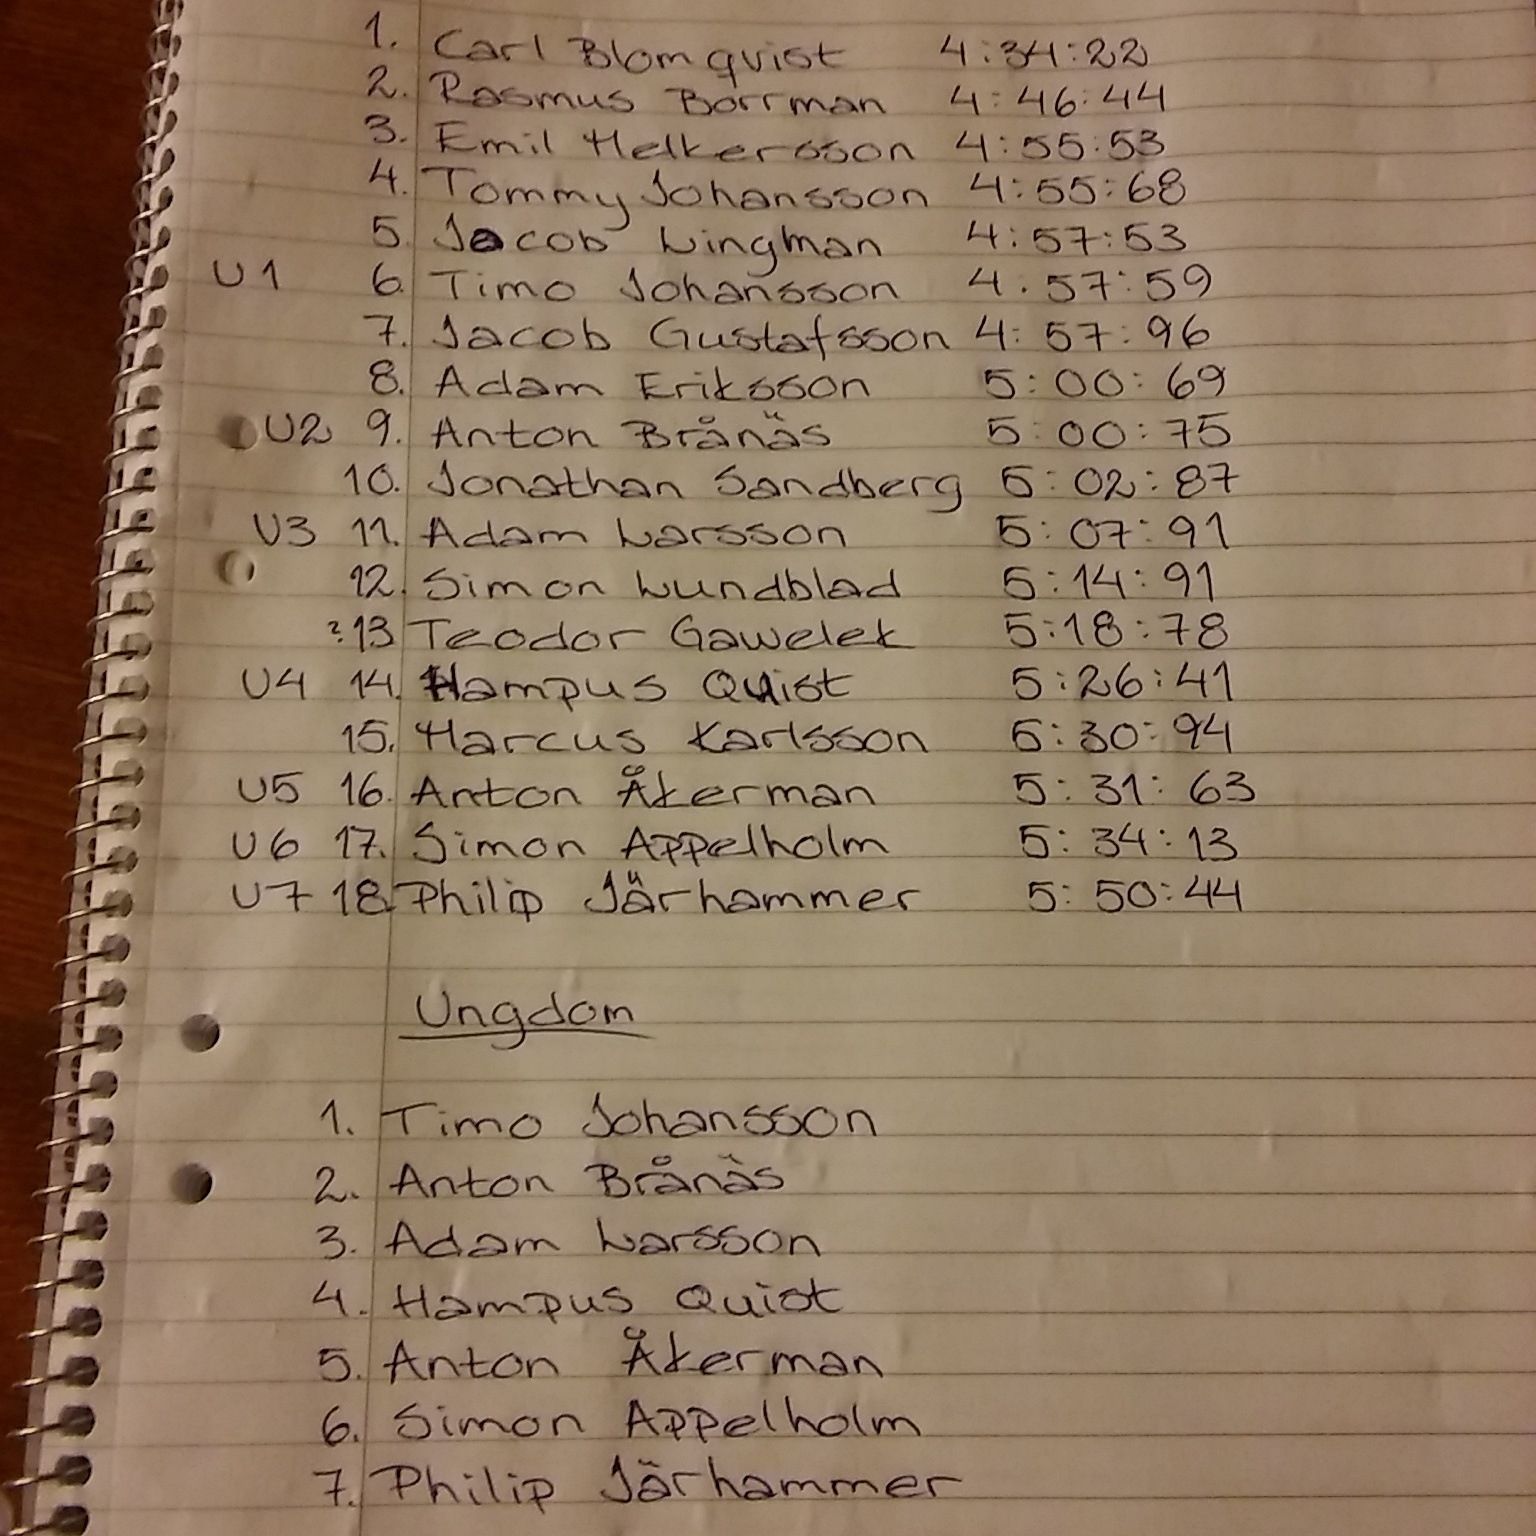 1. Carl Blomqvist 4:34:22
2. Rasmus Borrman 4:46:44
3. Emil Helkersson 4:55:53
4. Tommy Johansson 4:55:68
5. Jacob Lingman 4:57:53
U1 6. Timo Johansson 4.57:59
7. Jacob Gustafsson 4:57:96
8. Adam Eriksson 5:00:69
U2 9. Anton Brånäs 5:00:75
10. Jonathan Sandberg 5:02:87
U3 11. Adam Larsson 5:07:91
12. Simon Lundblad 5:14:91
?13 Teodor Gawelek 5:18:78
U4 14. Hampus Quist 5:26:41
15. Marcus Karlsson 5:30:94
U5 16. Anton Åkerman 5:31:63
U6 17. Simon Appelholm 5:34:13
U7 18. Philip Järhammer 5:50:44
Ungdom
1. Timo Johansson
2. Anton Brånäs
3. Adam Larsson
4. Hampus Quist
5. Anton Åkerman
6. Simon Appelholm
7. Philip Järhammer